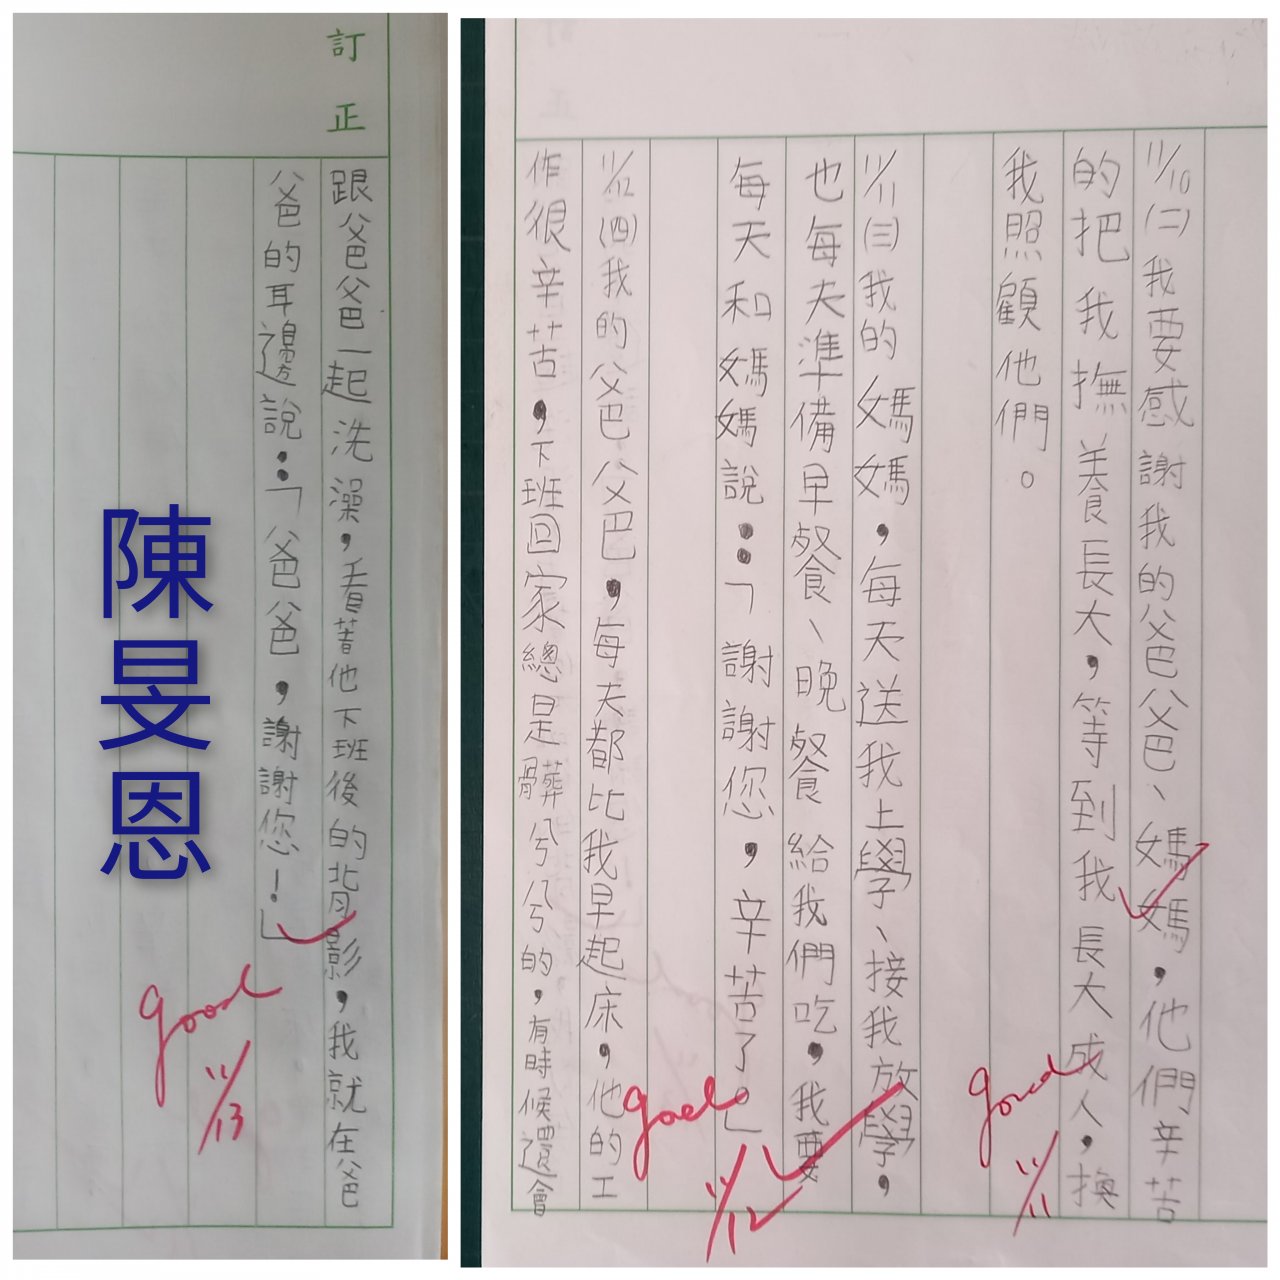 11/10(二)我要感謝我的爸爸、媽媽，他們辛苦
的把我撫養長大，等到我長大成人，換
我照顧他們。
good
11/11
11/11(三)我的媽媽，每天送我上學、接我放學，
也每天準備早餐、晚餐給我們吃，我要
每天和媽媽說：「謝謝您，辛苦了。」
good
11/12
11/12(四)我的爸爸，每天都比我早起床，他的工
作很辛苦，下班回家總是髒兮兮的，有時候還會
訂正
跟爸爸一起洗澡，看著他下班後的背影，我就在爸
爸的耳邊說：「爸爸，謝謝您！」
good
11/13
陳旻恩